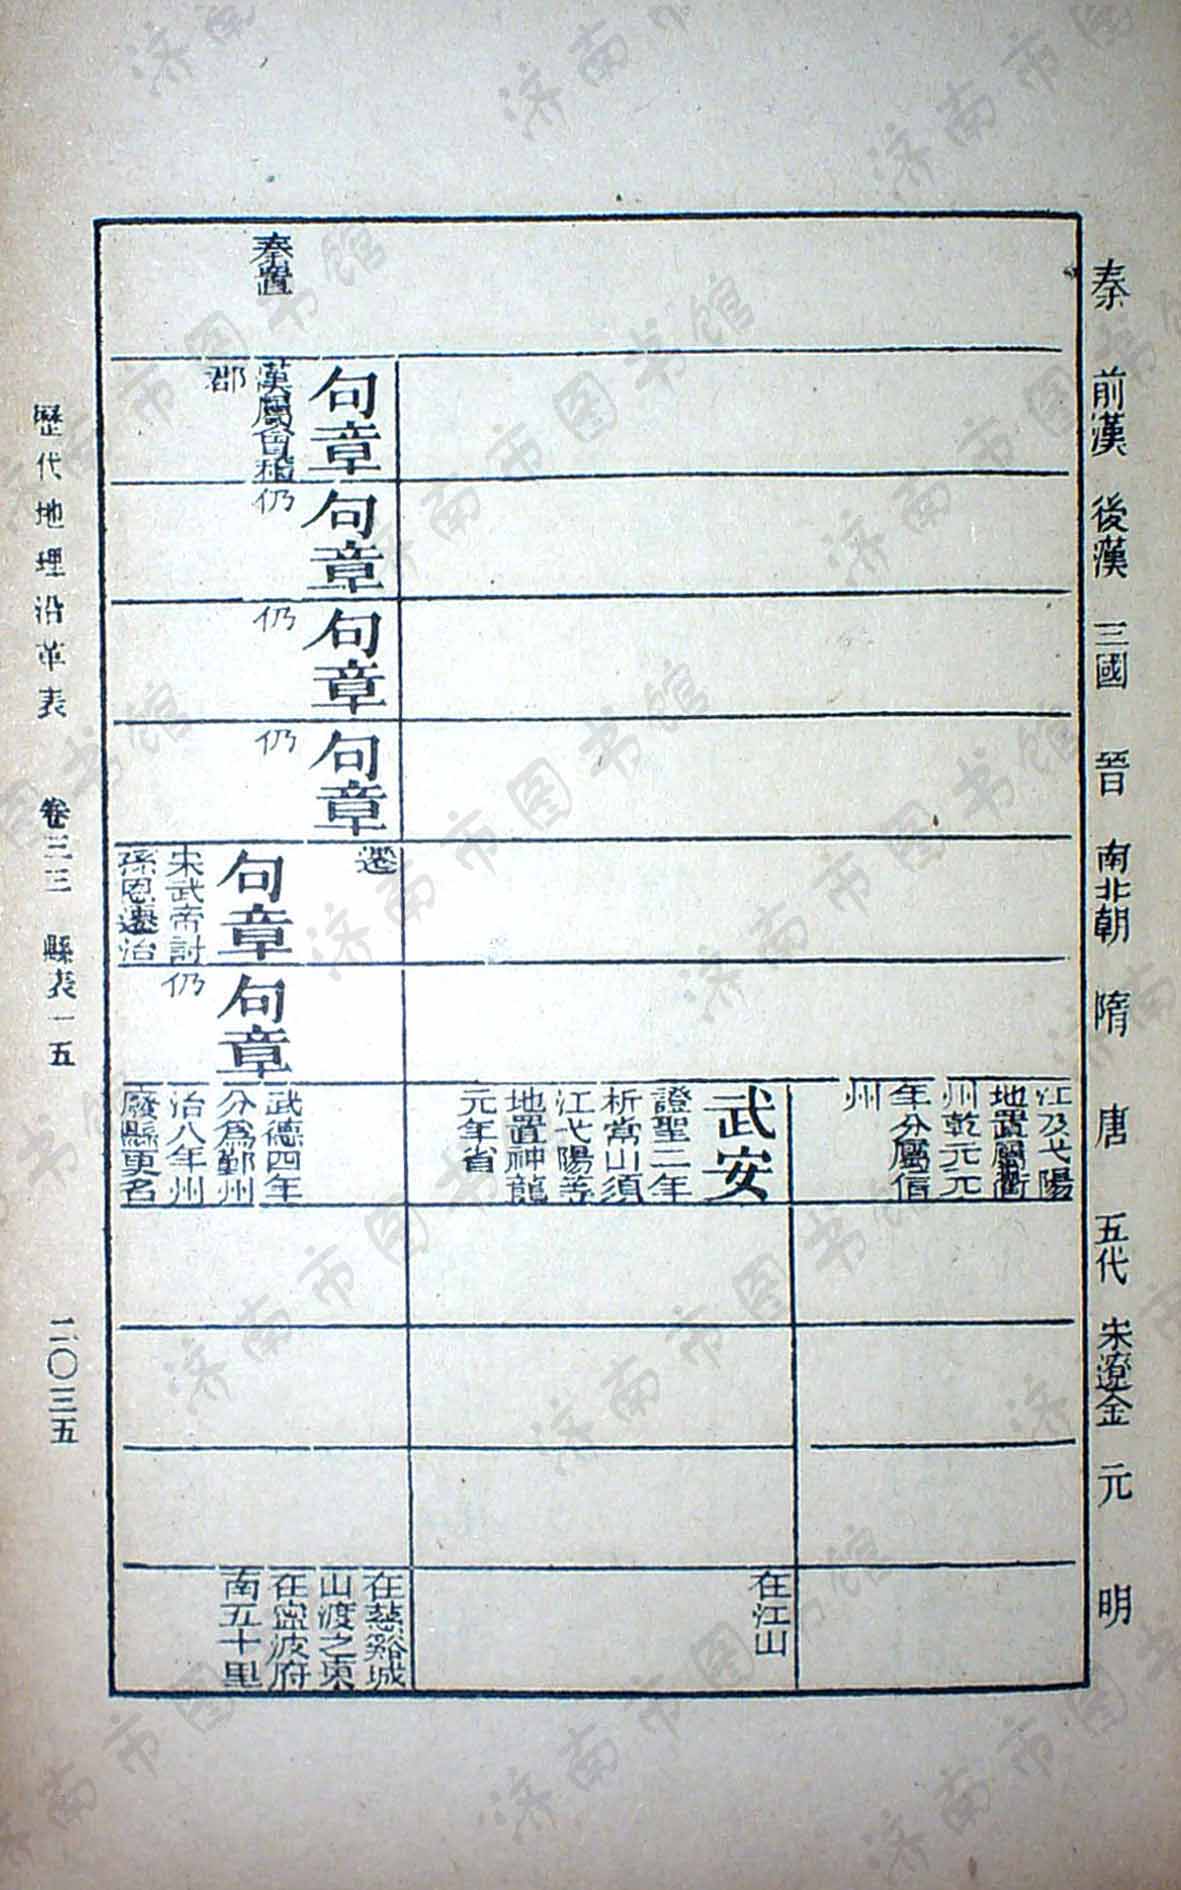 秦
前漢
後漢
三國
晉
南北朝
隋
唐
五代
宋遼金
元
明
江及弋陽
地置屬衢
州乾元元
年分屬信
州
武安
證聖二年
析常山須
江弋陽等
地置神龍
元年省
在江山
秦置
句章
漢屬會稽
郡
句章
仍
句章
仍
句章
仍
遷
句章
宋武帝討
孫恩遷治
句章
仍
武德四年
分爲鄞州
治八年州
廢縣更名
在慈谿城
山渡之東
在寧波府
南五十里
歷代地理沿革表
卷三三
縣表一五
二〇三五
济南市图书馆